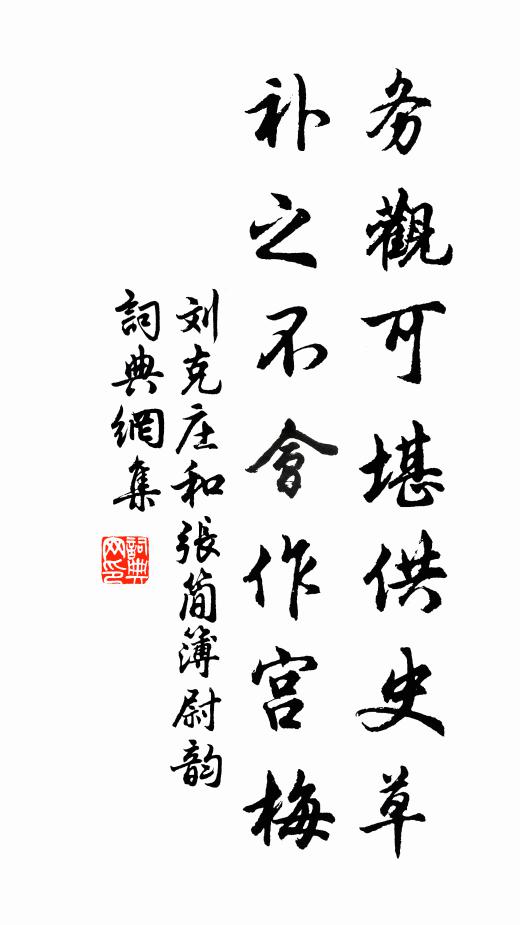 务觀可堪供史草
补之不會作宫梅
刘克庄和張簡簿尉韵
詞典網集
詞典
网印